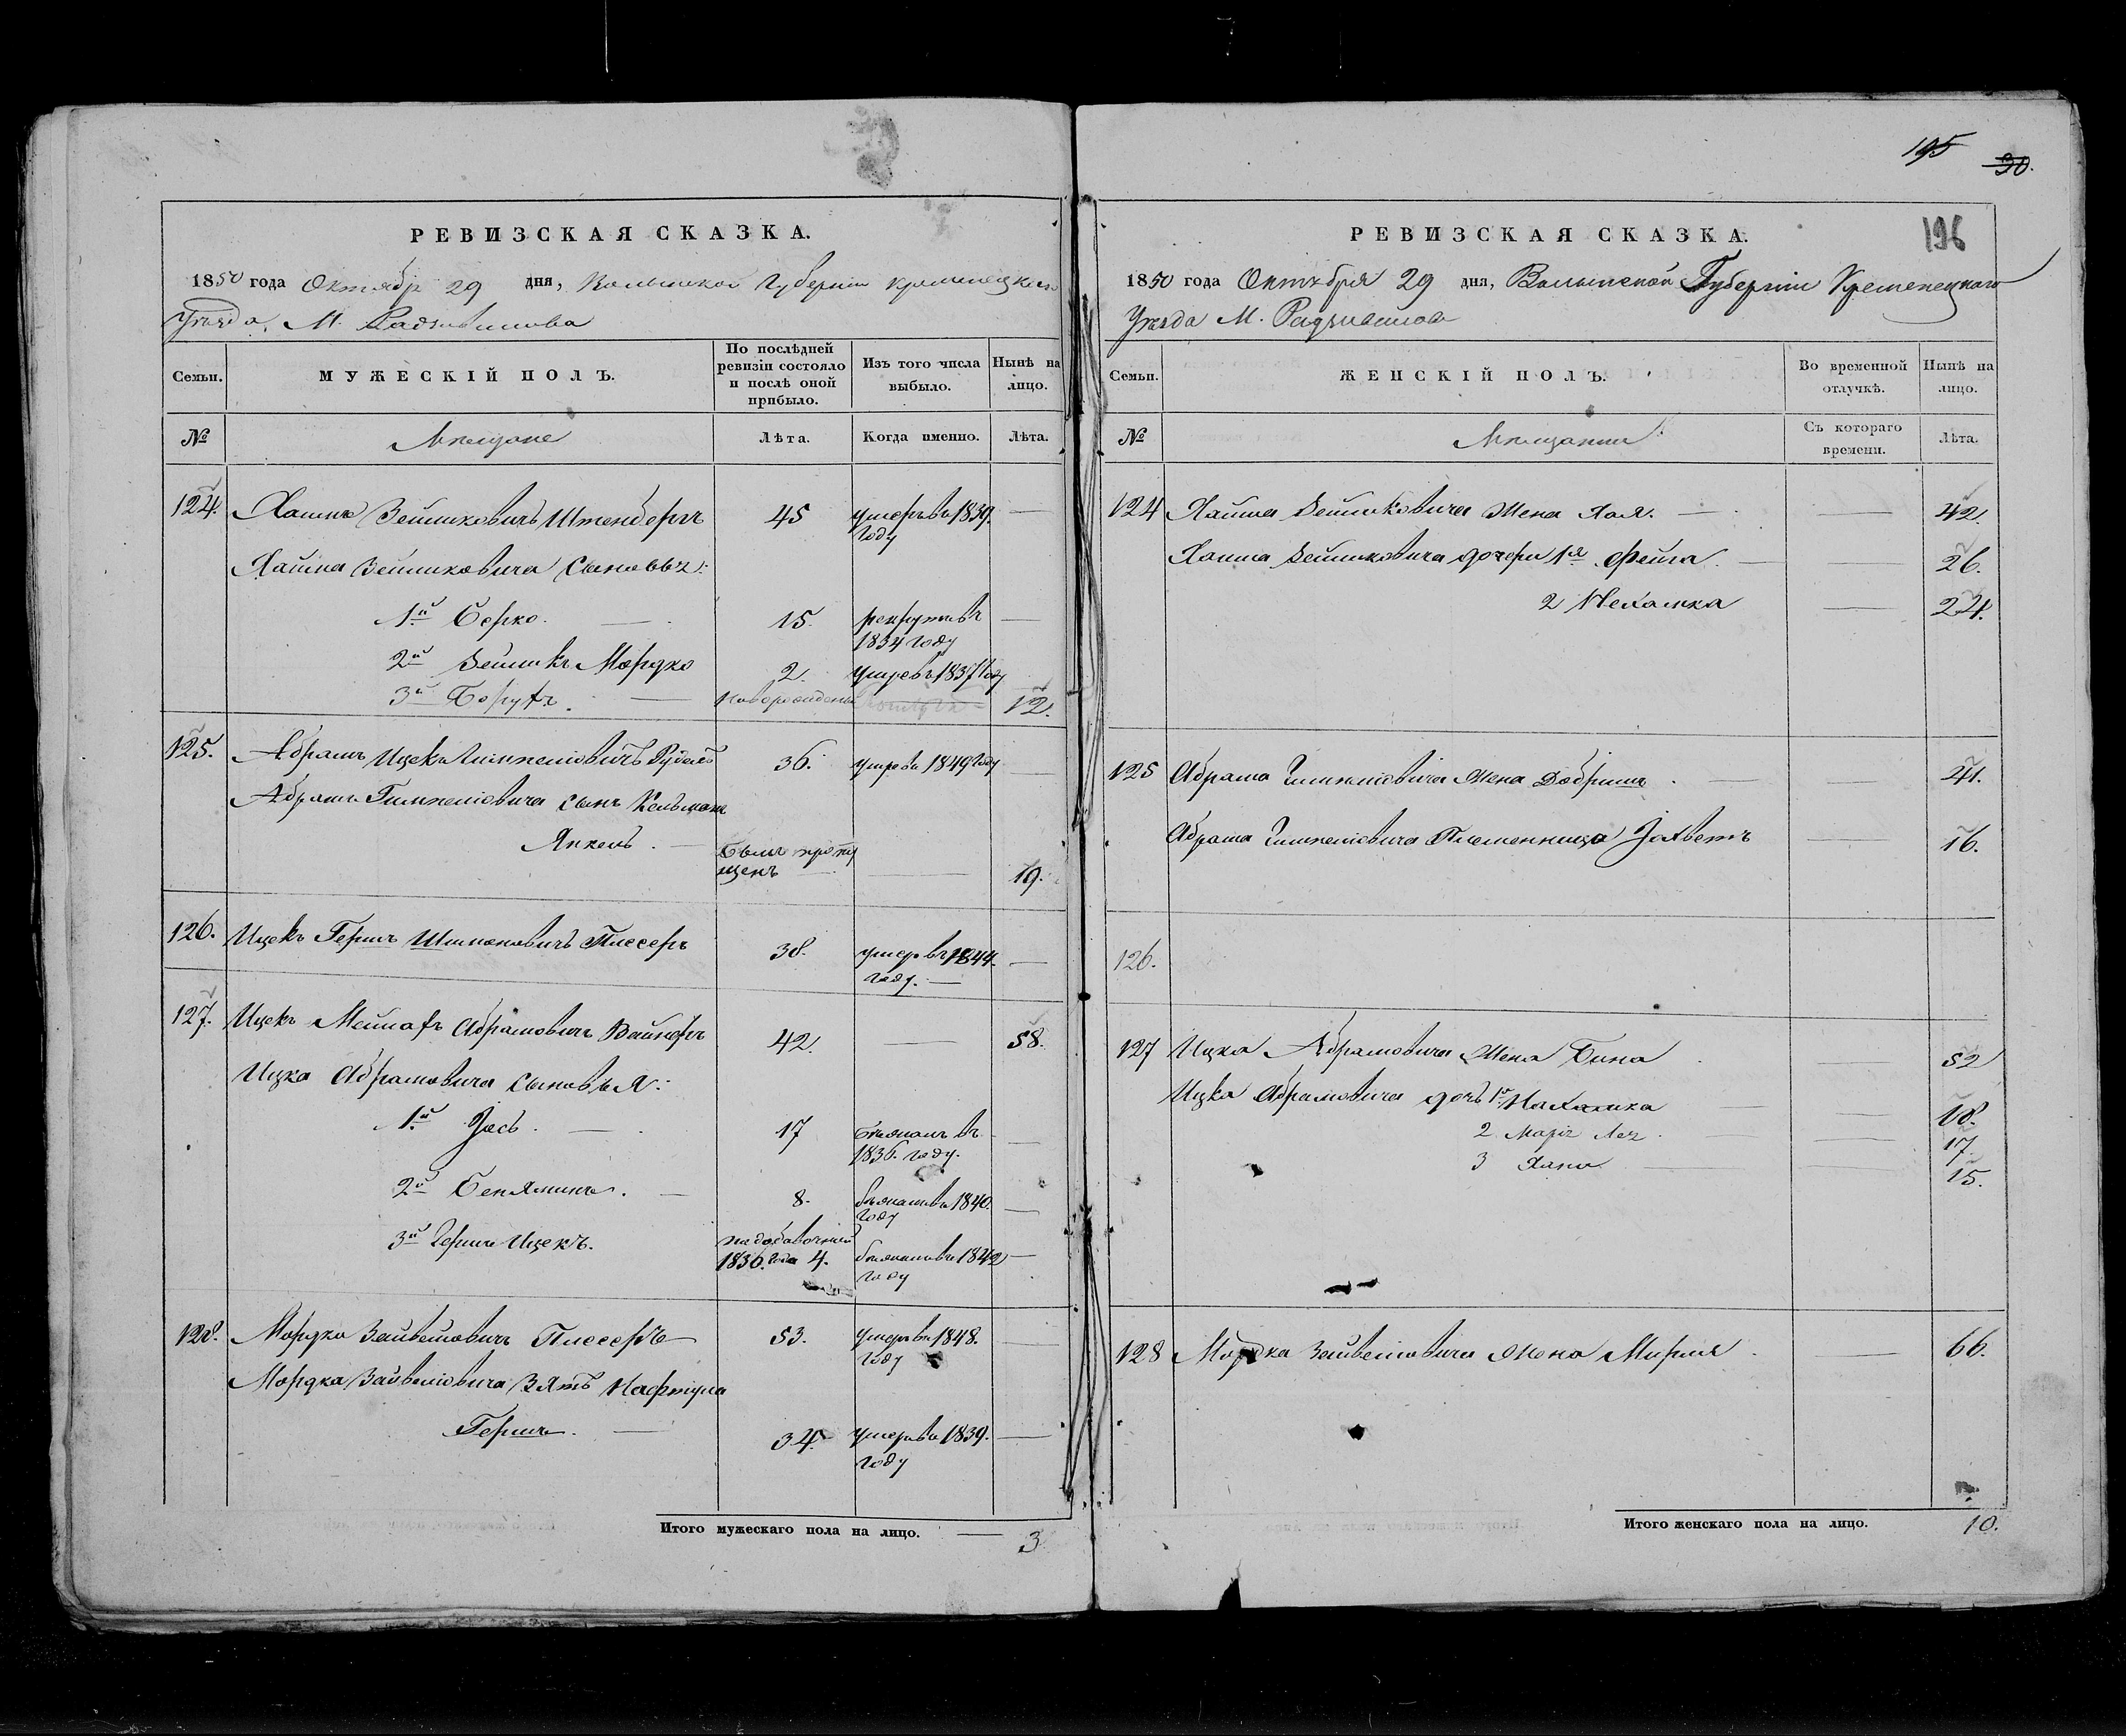 РЕВИЗСКАЯ СКАЗКА.
1850 года Октябр 29 дня, Волынской Губернии Кременецкаго
Уезда, М. Радзивилова
Семьи.
МУЖЕСКІЙ ПОЛЪ.
По послѣдней ревизіи состояло и послѣ оной прибыло.
Изъ того числа выбыло.
Нынѣ на лицо.
№
Мещане
Лѣта.
Когда именно.
Лѣта.
124. Хаимъ Зейликовичъ Штенбергъ 45 умеръ въ 1839. году —
Хаима Зейликовича сыновья:
1й Берко. — 15. рекрутъ въ 1834 году —
2й Зейликъ Мордко 2. умре въ 1837 году
3й Борухъ. — новорожденъ 12.
125. Абрамъ Ицекъ Гимпелювичъ 36. умре въ 1849 году —
Абрама Гимпелювича сынъ Кельманъ
Янкель. — былъ пропущенъ — 19.
126. Ицекъ Гершъ Шимоновичъ Плесеръ 38. умеръ въ 1844. году. —
127. Ицекъ Абрамовичъ 42. — 58.
Ицка Абрамовича сыновья:
1й Іось. — 17 бежалъ въ 1836. году. —
2й Беняминъ. — 8. бежалъ въ 1840. году —
3й Гершъ Ицекъ. подобавочной 1836. года 4. бежалъ въ 1842 году —
128. Мордко Зайвелювичъ Плесеръ 53. умеръ въ 1848. году —
Мордка Зайвелювича зять Нафтула
Гершъ. — 34. умеръ въ 1839. году —
Итого мужескаго пола на лицо. — 3
195
30.
196
РЕВИЗСКАЯ СКАЗКА.
1850 года Октября 29 дня, Волынской Губерніи Кременецкаго
Уезда М. Радзивилова
Семьи.
ЖЕНСКІЙ ПОЛЪ.
Во временной отлучкѣ.
Нынѣ на лицо.
№
Мещанки
Съ котораго времени.
Лѣта.
124 Хаима Зейликовича жена Хая. — 42.
Хаима Зейликовича дочери 1я Фейга. — 26.
2 Нехамка — 24.
125 Абрама Гимпелювича жена Добришъ. — 41.
Абрама Гимпелювича племенница — 16.
126.
127 Ицка Абрамовича жена Бина — 52
Ицка Абрамовича дочь 1я Нахамка — 18.
2 Марія Лея. — 17.
3 Хана — 15.
128 Мордка Зейвелювича жена Мирля. — 66.
Итого женскаго пола на лицо. 10.